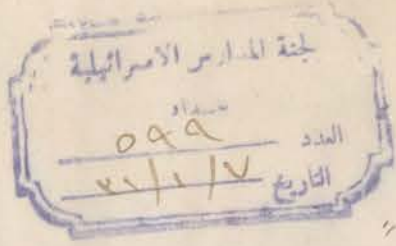 لجنة المدارس الاسرائيلية
بغداد
العدد ٥٩٩
التاريخ ٧/١/٣١